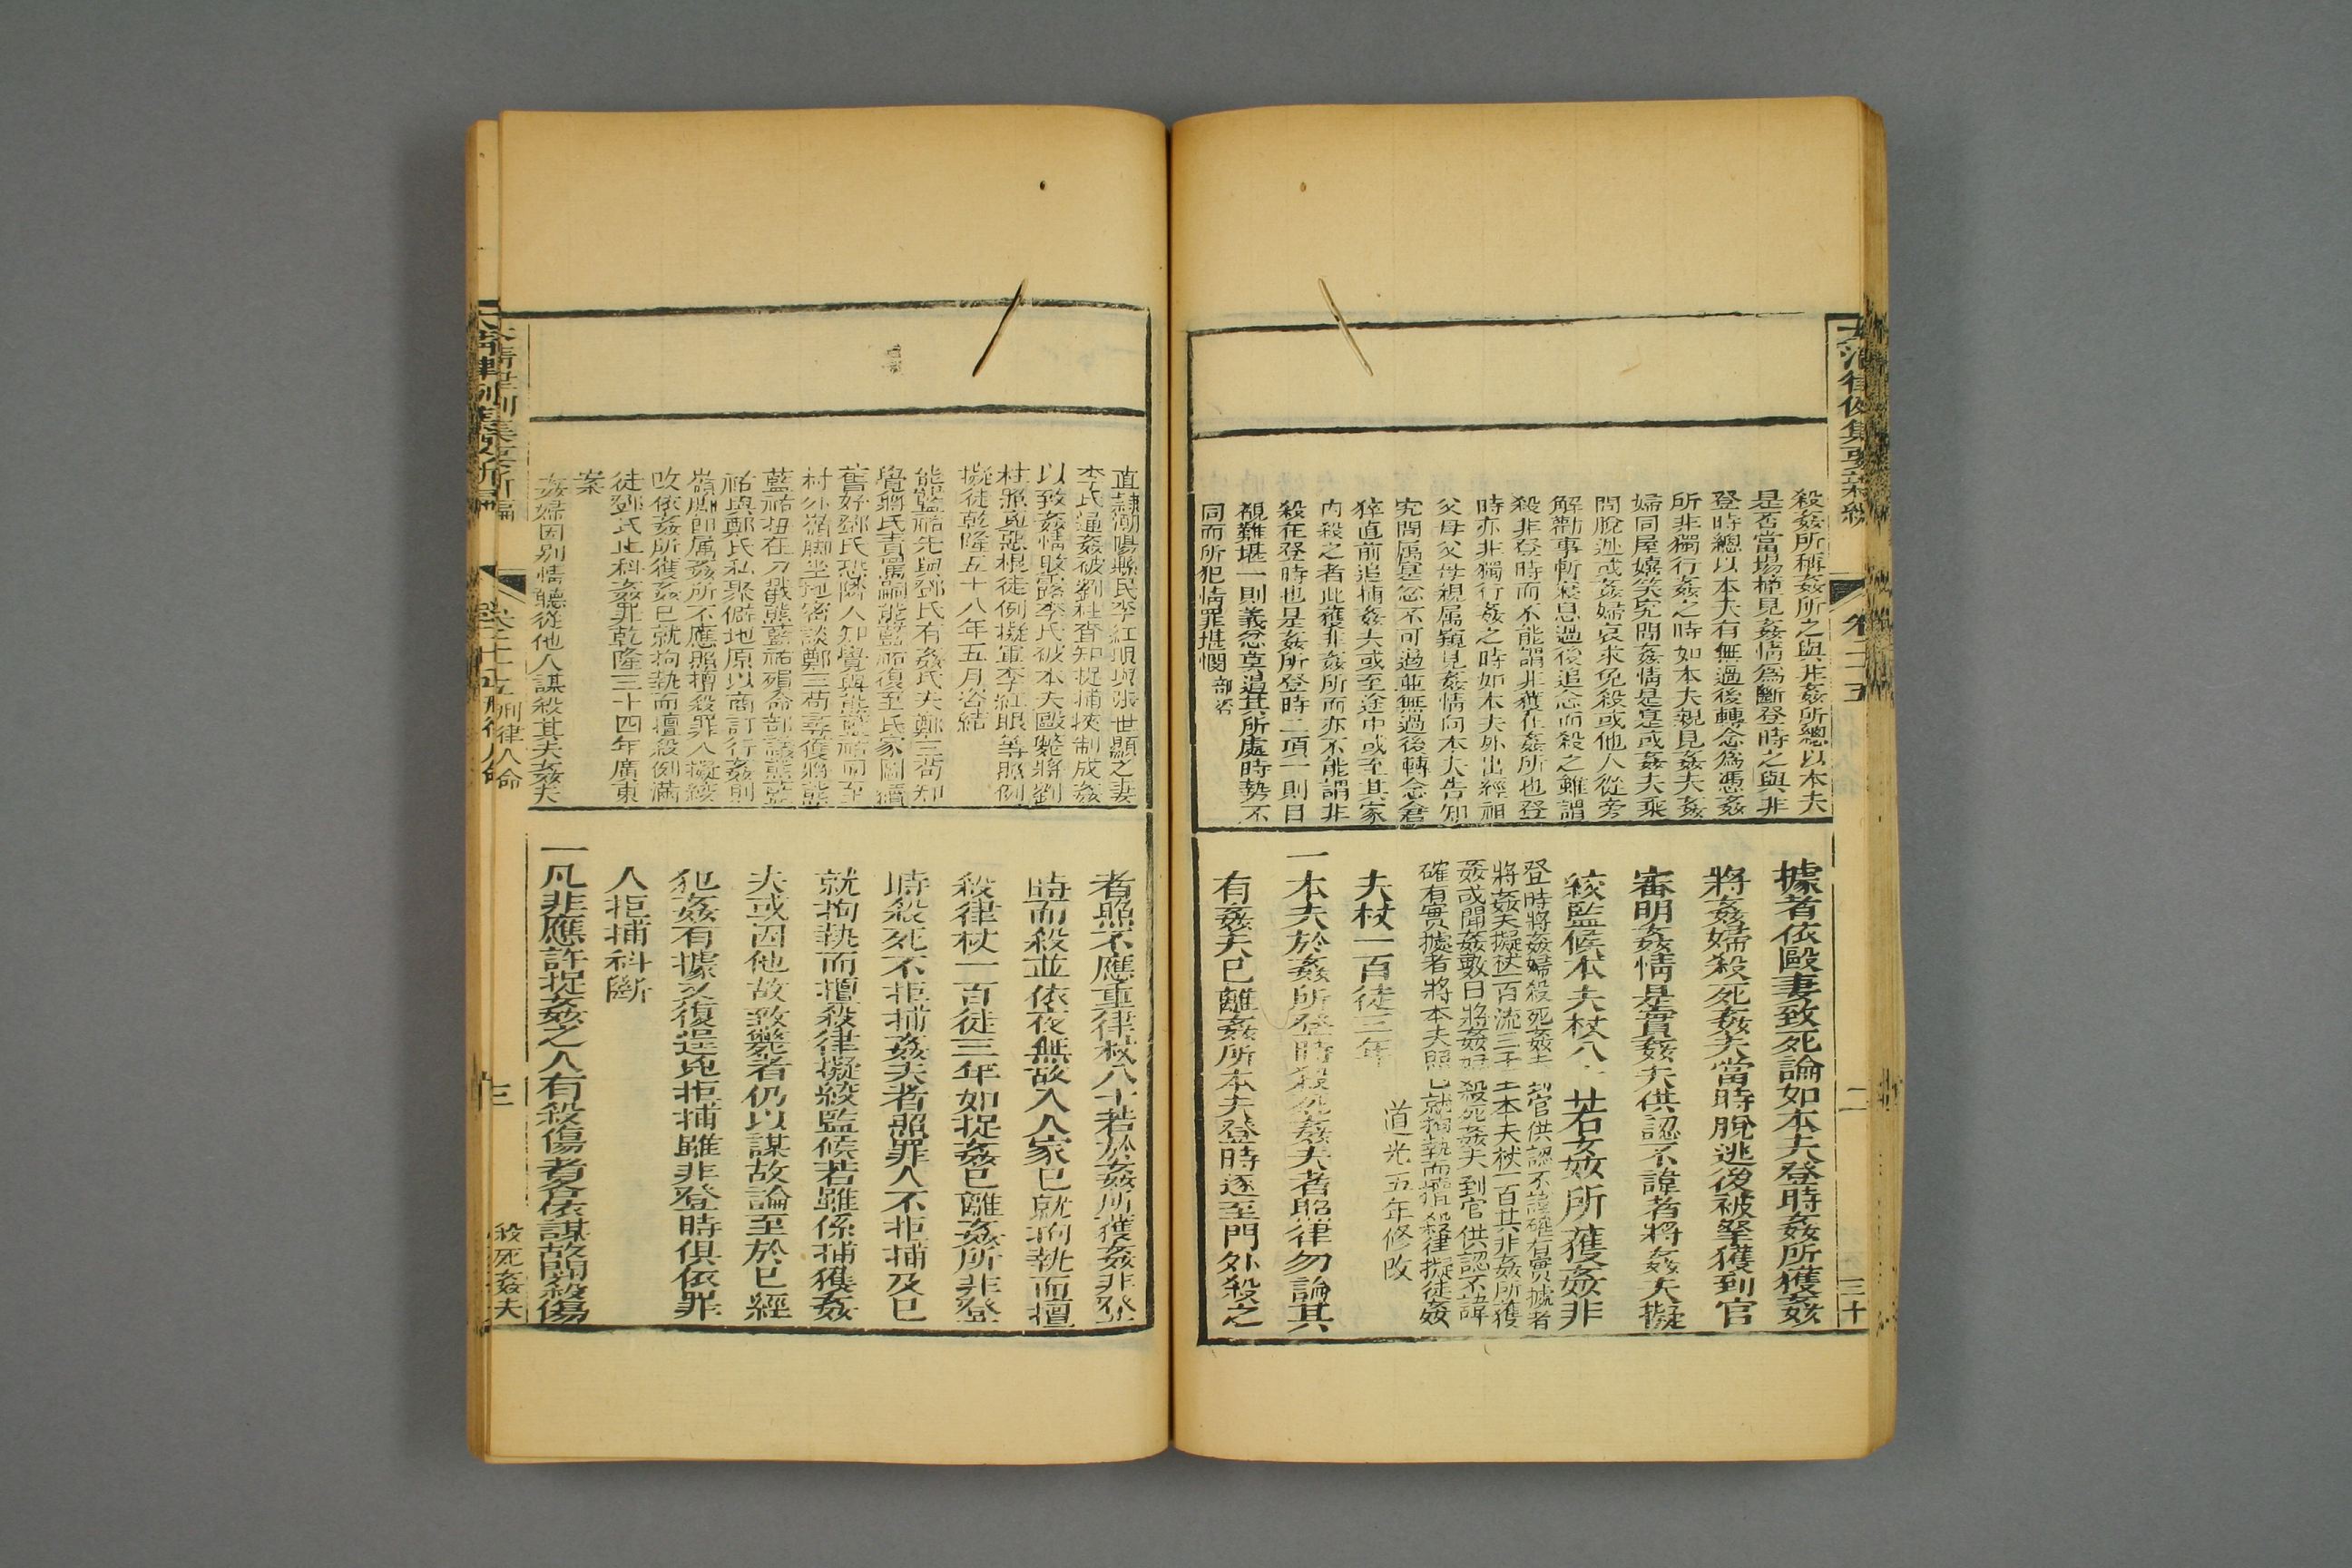 大清律例集要新編
卷二十五
三十
殺姦所稱姦所之與非姦所總以本夫
是否當場撞見姦情為斷登時之與非
登時總以本夫有無過後轉念為憑姦
所非獨行姦之時如本夫親見姦夫姦
婦同屋嬉笑究問姦情是真或姦夫乘
間脫逃或姦婦哀求免殺或他人從旁
解勸事暫寢息過後追忿而殺之雖謂
殺非登時而不能謂非獲在姦所也登
時亦非獨行姦之時如本夫外出經祖
父母父母親属窺見姦情向本夫告知
究問属是忿不可遏並無過後轉念倉
猝直前追捕姦夫或至途中或至其家
內殺之者此獲非姦所而亦不能謂非
殺在登時也是姦所登時二項一則目
覩難堪一則義忿莫遏其所處時勢不
同而所犯情罪堪憫 部咨
據者依毆妻致死論如本夫登時姦所獲姦
將姦婦殺死姦夫當時脫逃後被拏獲到官
審明姦情是實姦夫供認不諱者將姦夫擬
絞監候本夫杖八十若姦所獲姦非
登時將姦婦殺死姦夫到官供認不諱確有實據者
將姦夫擬杖一百流三千里本夫杖一百其非姦所獲
姦或聞姦數日將姦婦殺死姦夫到官供認不諱
確有實據者將本夫照已就拘執而擅殺律擬徒姦
夫杖一百徒三年 道光五年修改
一本夫於姦所登時殺死姦夫者照律勿論其
有姦夫已離姦所本夫登時逐至門外殺之
直隷潮陽縣民李紅眼與張世顯之妻
李氏通姦被劉柱查知捉捕挾制成姦
以致姦情敗露李氏被本夫毆斃將劉
柱照兇惡棍徒例擬軍李紅眼等照例
擬徒乾隆五十八年五月咨結
熊藍祐先與鄧氏有姦氏夫鄭三苟知
覺將氏責罵嗣熊藍祐復至氏家圖續
舊好鄧氏恐隣人知覺與熊藍祐同至
村外嶺脚坐地密談鄭三苟尋獲將熊
藍祐扭在刀戳熊藍祐殞命部議熊藍
祐與鄭氏私聚僻地原以商訂行姦則
嶺脚即属姦所不應照擅殺罪人擬絞
改依姦所獲姦已就拘執而擅殺例滿
徒鄧氏止科姦罪乾隆三十四年廣東
案
姦婦因別情聽從他人謀殺其夫姦夫
者照不應重律杖八十若於姦所獲姦非登
時而殺並依夜無故入人家已就拘執而擅
殺律杖一百徒三年如捉姦已離姦所非登
時殺死不拒捕姦夫者照罪人不拒捕及已
就拘執而擅殺律擬絞監候若雖係捕獲姦
夫或因他故致斃者仍以謀故論至於已經
犯姦有據又復逞兇拒捕雖非登時俱依罪
人拒捕科斷
一凡非應許捉姦之人有殺傷者各依謀故鬬殺傷
大清律例集要新編
卷二十五刑律人命
三
殺死姦夫